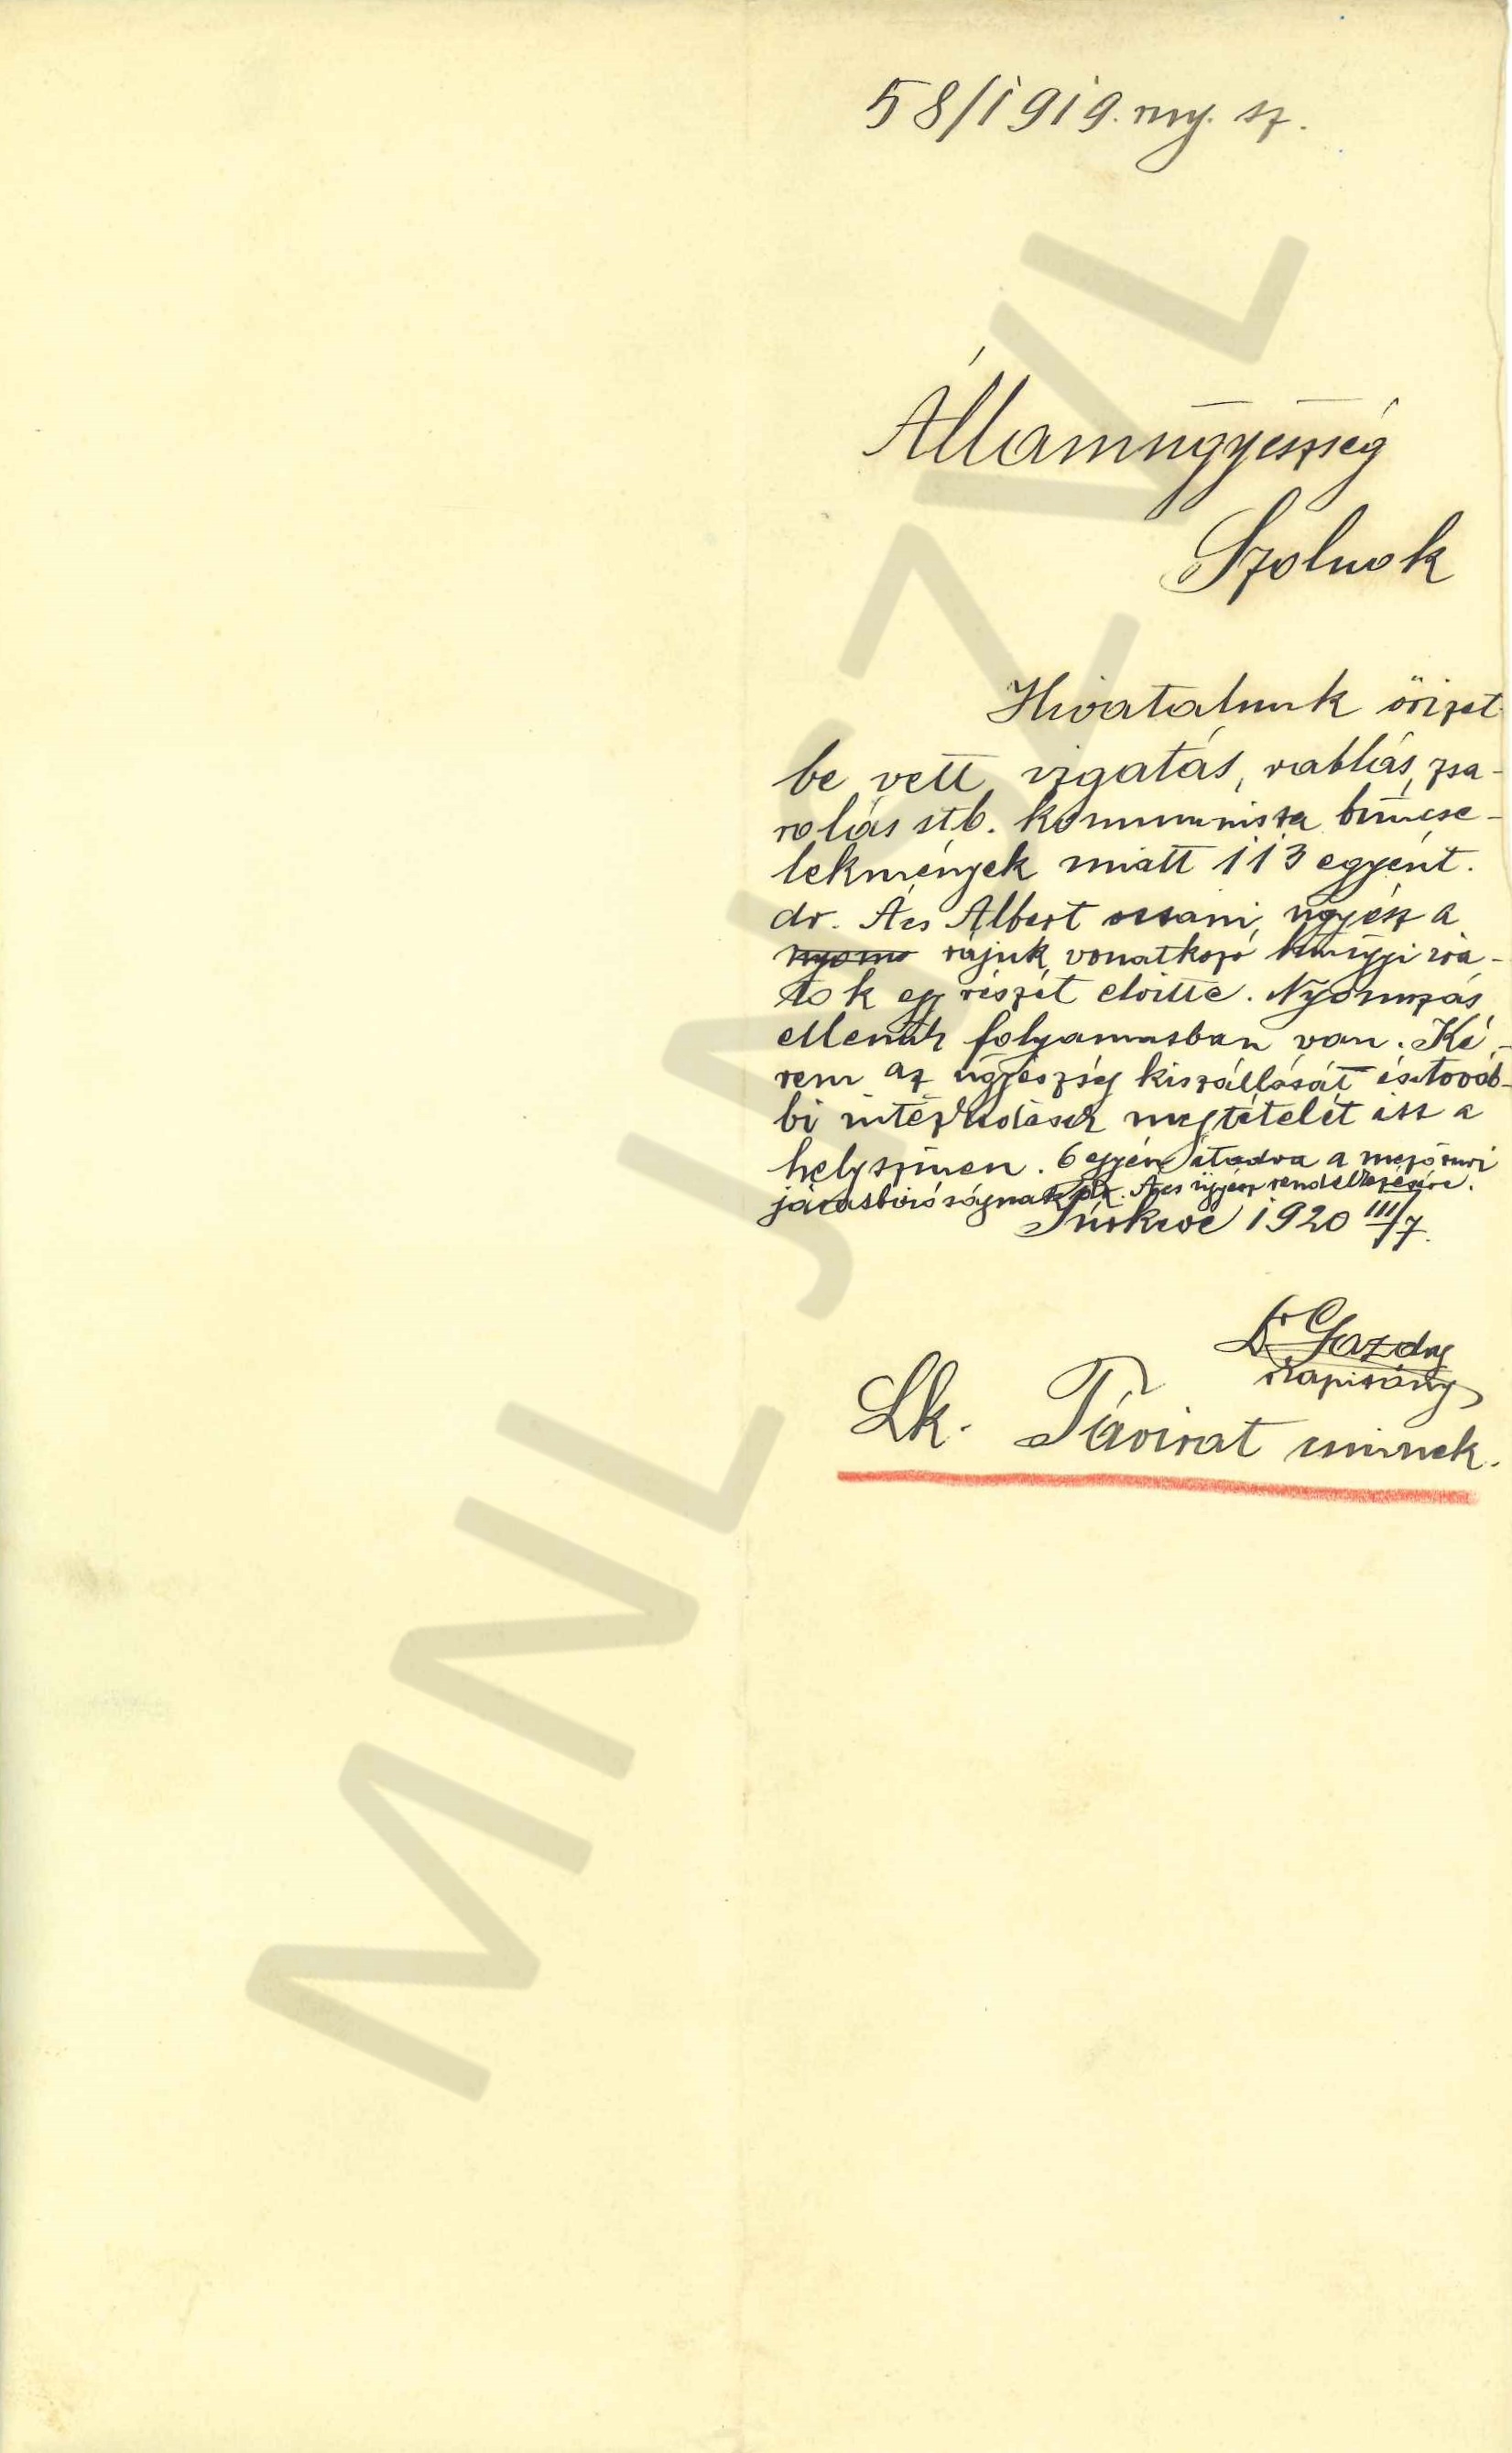 58/1919. ny. sz.
Államügyészség
Szolnok
Hivatalunk őrizet
be vett izgatás, rablás, zsa-
rolás stb. kommunista bűncse-
lekmények miatt 113 egyént.
dr. Ács Albert ügyész a
nyomo rájuk vonatkozó bűnügyi ira-
tok egy részét elvitte. Nyomozás
ellenük folyamatban van. Ké-
rem az ügyészség kiszállását és továb-
bi intézkedések megtételét itt a
helyszínen. 6 egyén átadva a mezőturi
járásbiróságnak dr. Ács ügyész rendelkezésére.
Túrkeve 1920 III/7.
Dr Gazdag
kapitány
Lk. Távirat
MNL JNSZVL